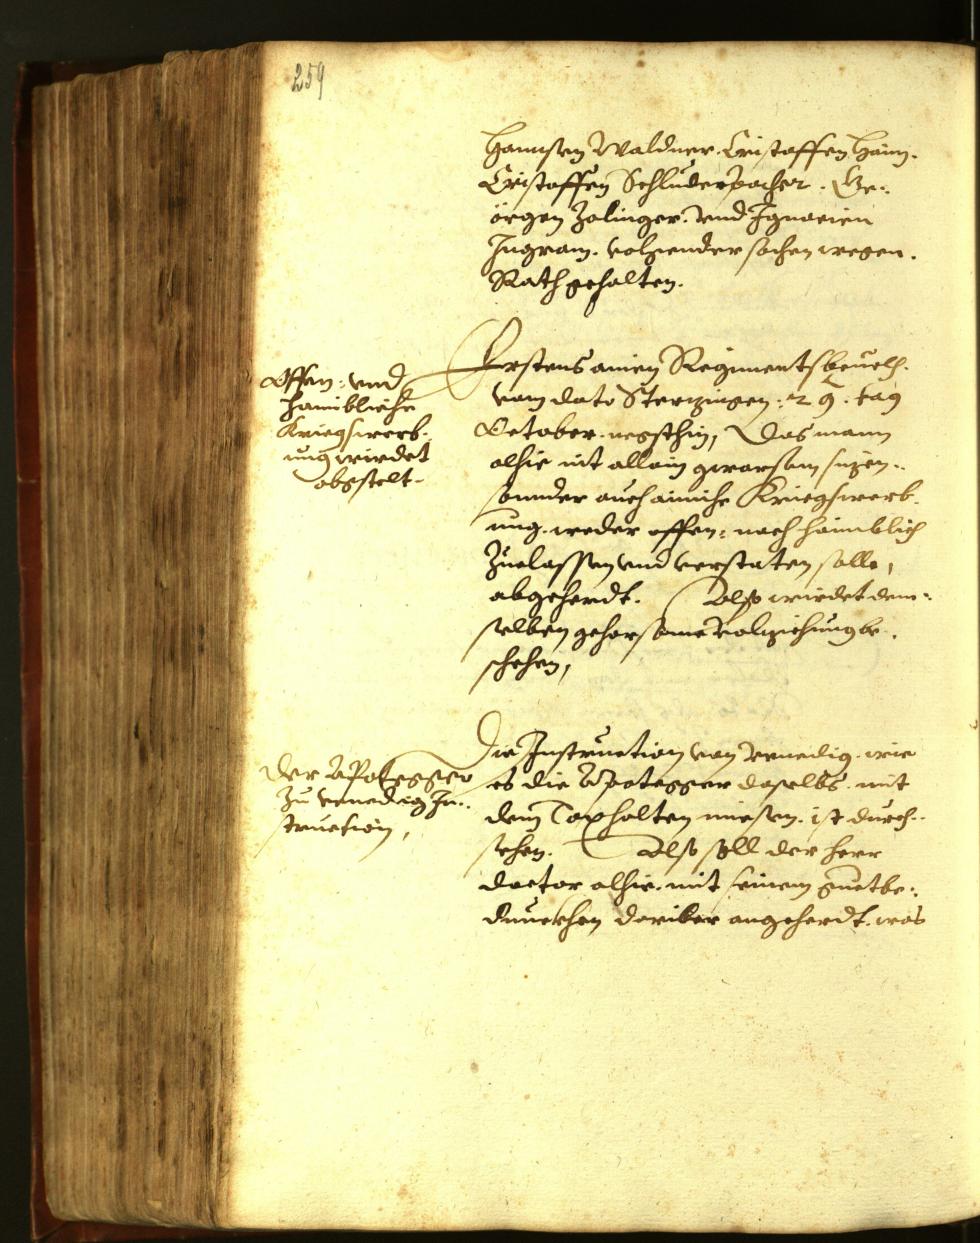 259
Hannsen Waldner. Cristoffen Hain.
Cristoffen Schluderpacher. Ge=
örgen Zolinger. vnd Ignacien
Ingram. volgender sachen wegen.
Rath gehalten.
Offen: vnd
haimbliche
Kriegswerb-
ung wirdet
abgstelt.
Erstens ainen Regimentsbeuelh.
vom dato Sterzingen. 29. tag
October. negsthin, Das mann
alhie nit allain gwarsam sein.
sonnder auch ainiche Kriegswerb-
ung. weder offen: noch haimblich
Zuelassen vnd verstaten solle,
abgeherdt. Also wirdet dem=
selben gehorsame volziehung be-
schehen,
Der Apotegger
Zu venedig In=
struction,
Die Instruction von venedig. wie
es die Apotegger daselbs. mit
dem Tax halten miesen. ist durch=
sehen. Also soll der herr
doctor alhie. mit seinem guetbe=
dunckhen dariber angeherdt. was